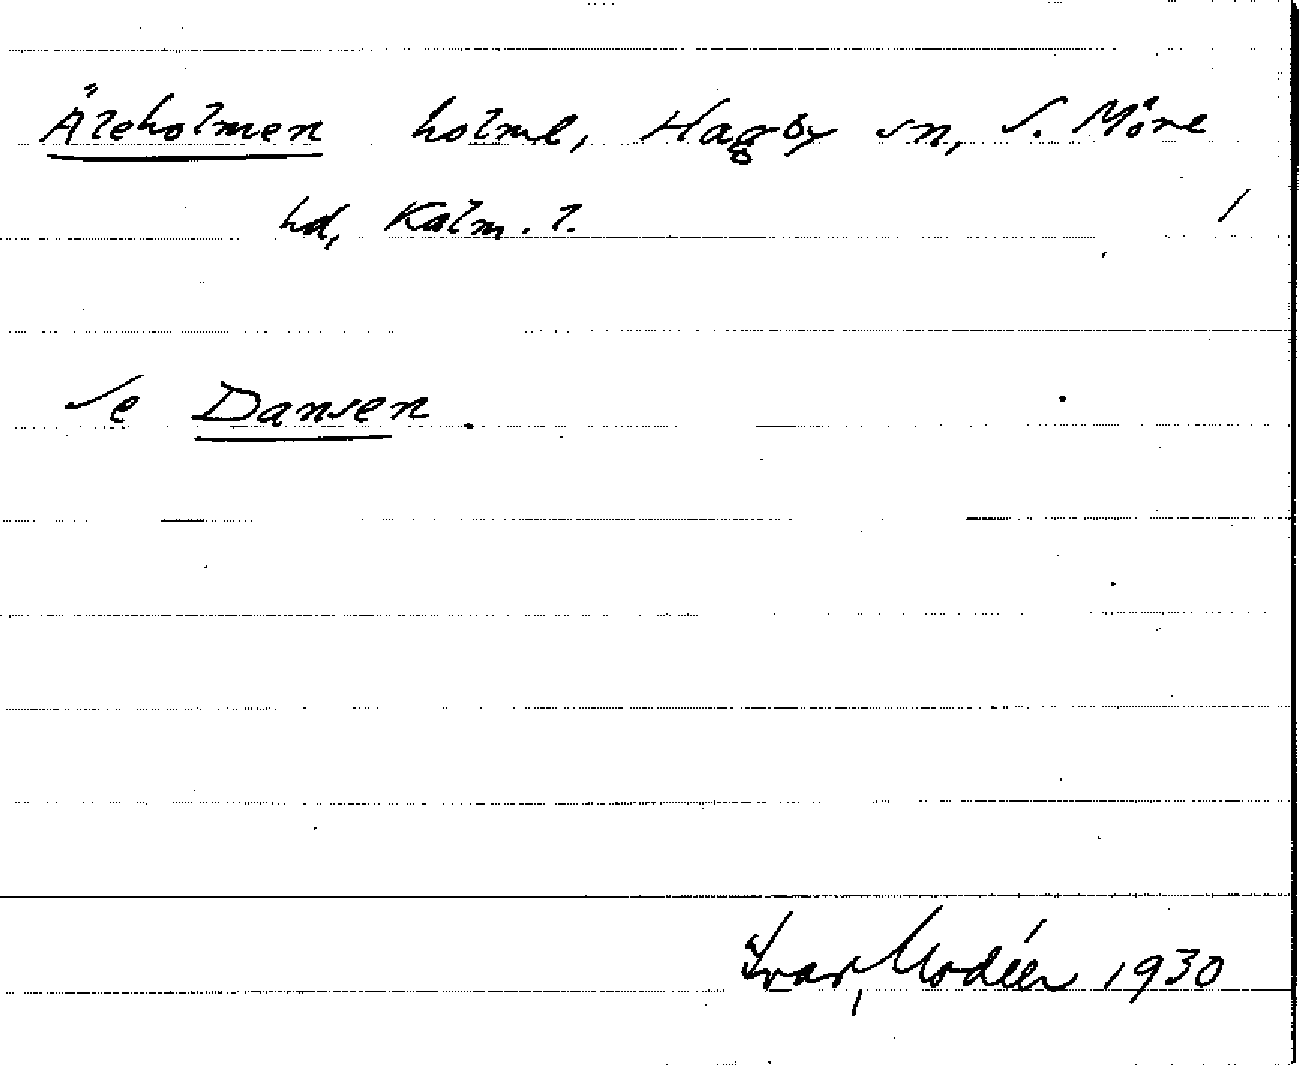 Äleholmen holme, Hagby sn, S. Möre
hd, Kalm. l. /
Se Dansen.
Ivar Modéer 1930